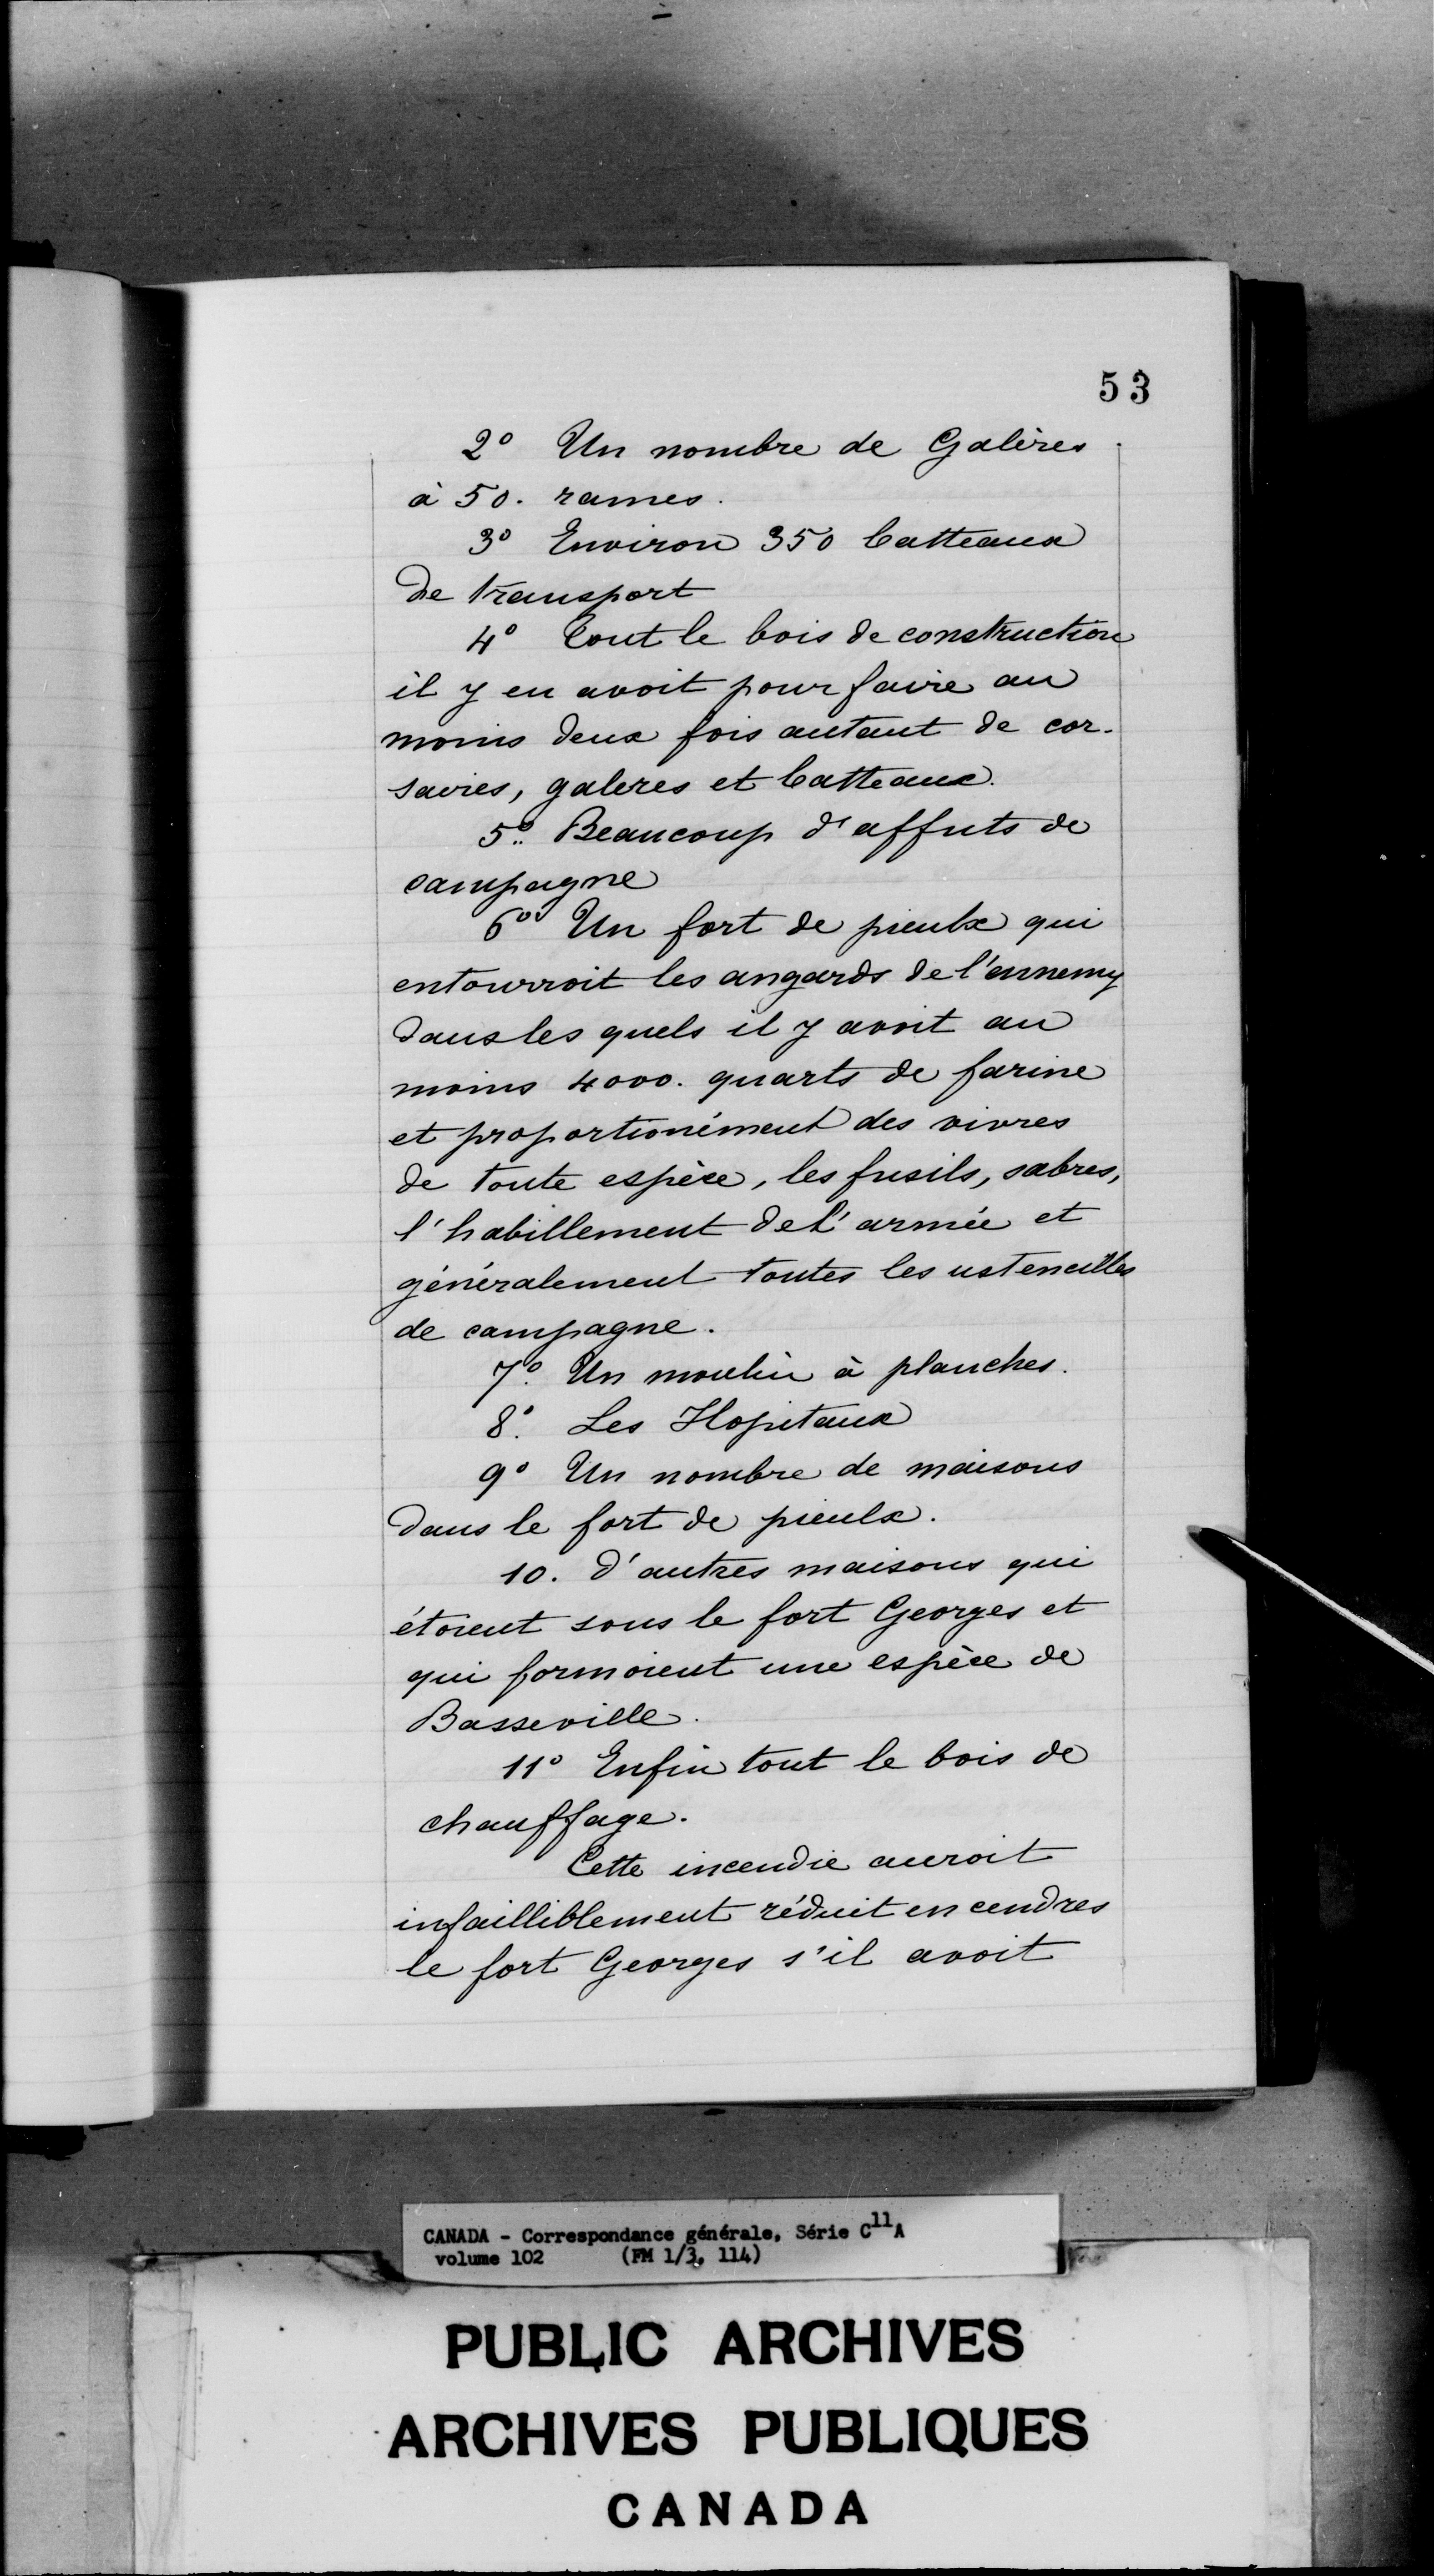 53
2° Un nombre de Galères
à 50. rames.
3° Environ 350 batteaux
de transport
4° Tout le bois de construction
il y en avoit pour faire au
moins deux fois autant de cor-
saires, galeres et batteaux.
5° Beaucoup d'affuts de
campagne
6° Un fort de pieulx qui
entourroit les angards de l'ennemy
dans les quels il y avoit au
moins 4000. quarts de farine
et proportionément des vivres
de toute espèce, les fusils, sabres,
l'habillement de l'armée et
généralement toutes les ustencilles
de campagne.
7° Un moulin à planches.
8° Les Hopitaux
9° Un nombre de maisons
dans le fort de pieulx.
10. D'autres maisons qui
étoient sous le fort Georges et
qui formoient une espèce de
Basseville.
11° Enfin tout le bois de
chauffage.
Cette incendie auroit
infailliblement réduit en cendres
le fort Georges s'il avoit
CANADA - Correspondance générale, Série C11A
volume 102 (FM 1/3, 114)
PUBLIC ARCHIVES
ARCHIVES PUBLIQUES
CANADA